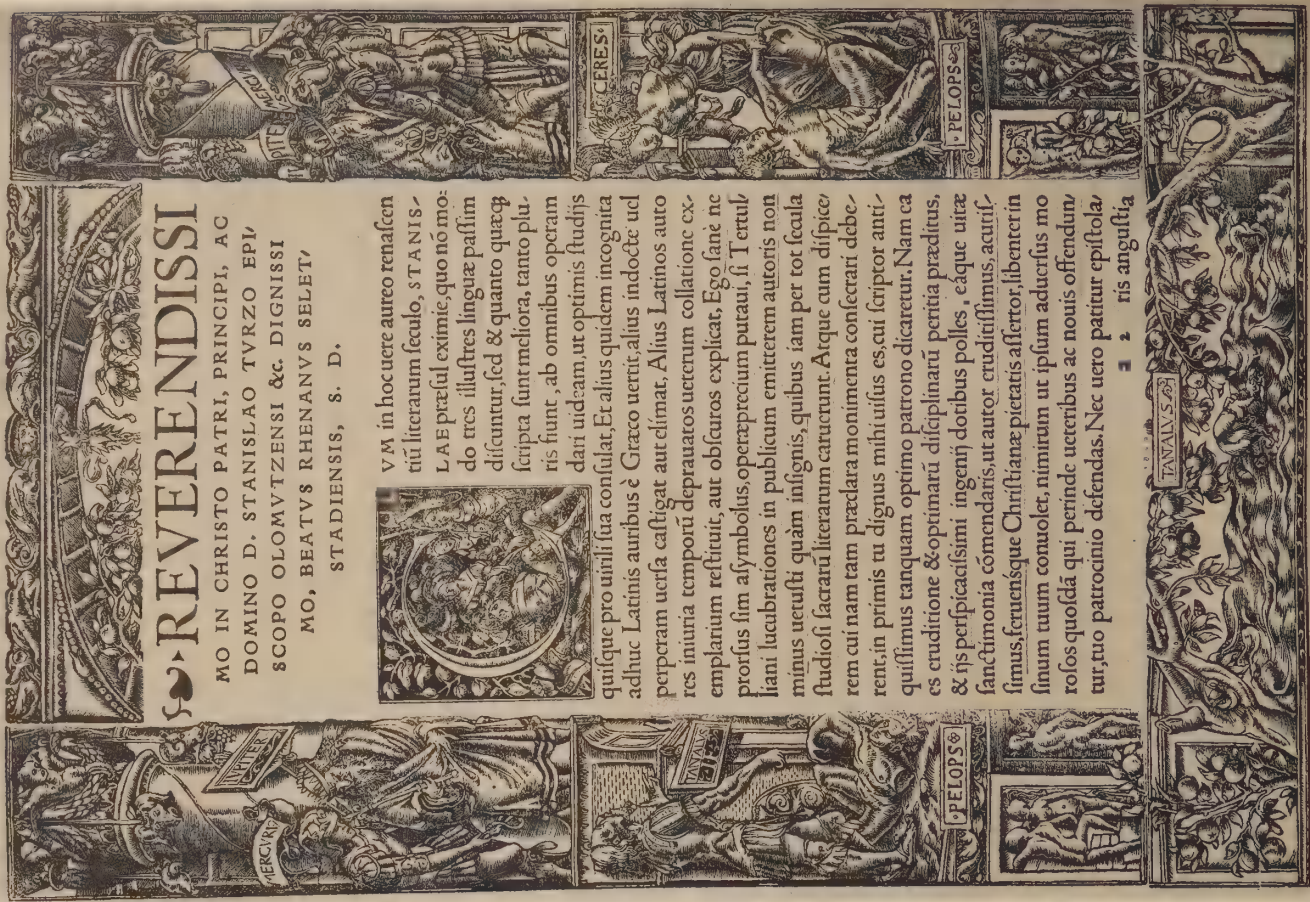 REVERENDISSI
MO IN CHRISTO PATRI, PRINCIPI, AC
DOMINO D. STANISLAO TVRZO EPI⸗
SCOPO OLOMVTZENSI &c. DIGNISSI
MO, BEATVS RHENANVS SELET⸗
STADIENSIS, S. D.
CVM in hoc uere aureo renaſcen
tiũ literarum ſeculo, STANIS⸗
LAE præſul eximie, quo nõ mo⸗
do tres illuſtres linguæ paſſim
diſcuntur, ſed & quanto quæqꝫ
ſcripta ſunt meliora, tanto plu⸗
ris fiunt, ab omnibus operam
dari uideam, ut optimis ſtudijs
quiſque pro uirili ſua conſulat, Et alius quidem incognita
adhuc Latinis auribus è Græco uertit, alius indocte uel
perperam uerſa caſtigat aut elimat, Alius Latinos auto
res iniuria temporũ deprauatos ueterum collatione ex⸗
emplarium reſtituit, aut obſcuros explicat, Ego ſanè ne
prorſus ſim aſymbolus, operæprecium putaui, ſi Tertul⸗
liani lucubrationes in publicum emitterem autoris non
minus uetuſti quàm inſignis, quibus iam per tot ſecula
ſtudioſi ſacrarũ literarum caruerunt. Atqe cum diſpice⸗
rem cui nam tam præclara monimenta conſecrari debe⸗
rent, in primis tu dignus mihi uiſus es, cui ſcriptor anti⸗
quiſſimus tanquam optimo patrono dicaretur. Nam ea
es eruditione & optimarũ diſciplinarũ peritia præditus,
& ijs perſpicaciſsimi ingenij dotibus polles, eáque uitæ
ſanctimonia cõmendaris, ut autor eruditiſſimus, acutiſ⸗
ſimus, feruenſque Chriſtianæ pietatis aſſertor, libenter in
ſinum tuum conuolet, nimirum ut ipſum aduerſus mo
roſos quoſdã qui perinde ueteribus ac nouis offendun⸗
tur, tuo patrocinio defendas. Nec uero patitur epiſtola⸗
a 2 ris anguſtia
MERCVRI
IVPITER
TANTALVS
PELOPS
IVPITER
MERCV
CERES
PELOPS
TANTALVS